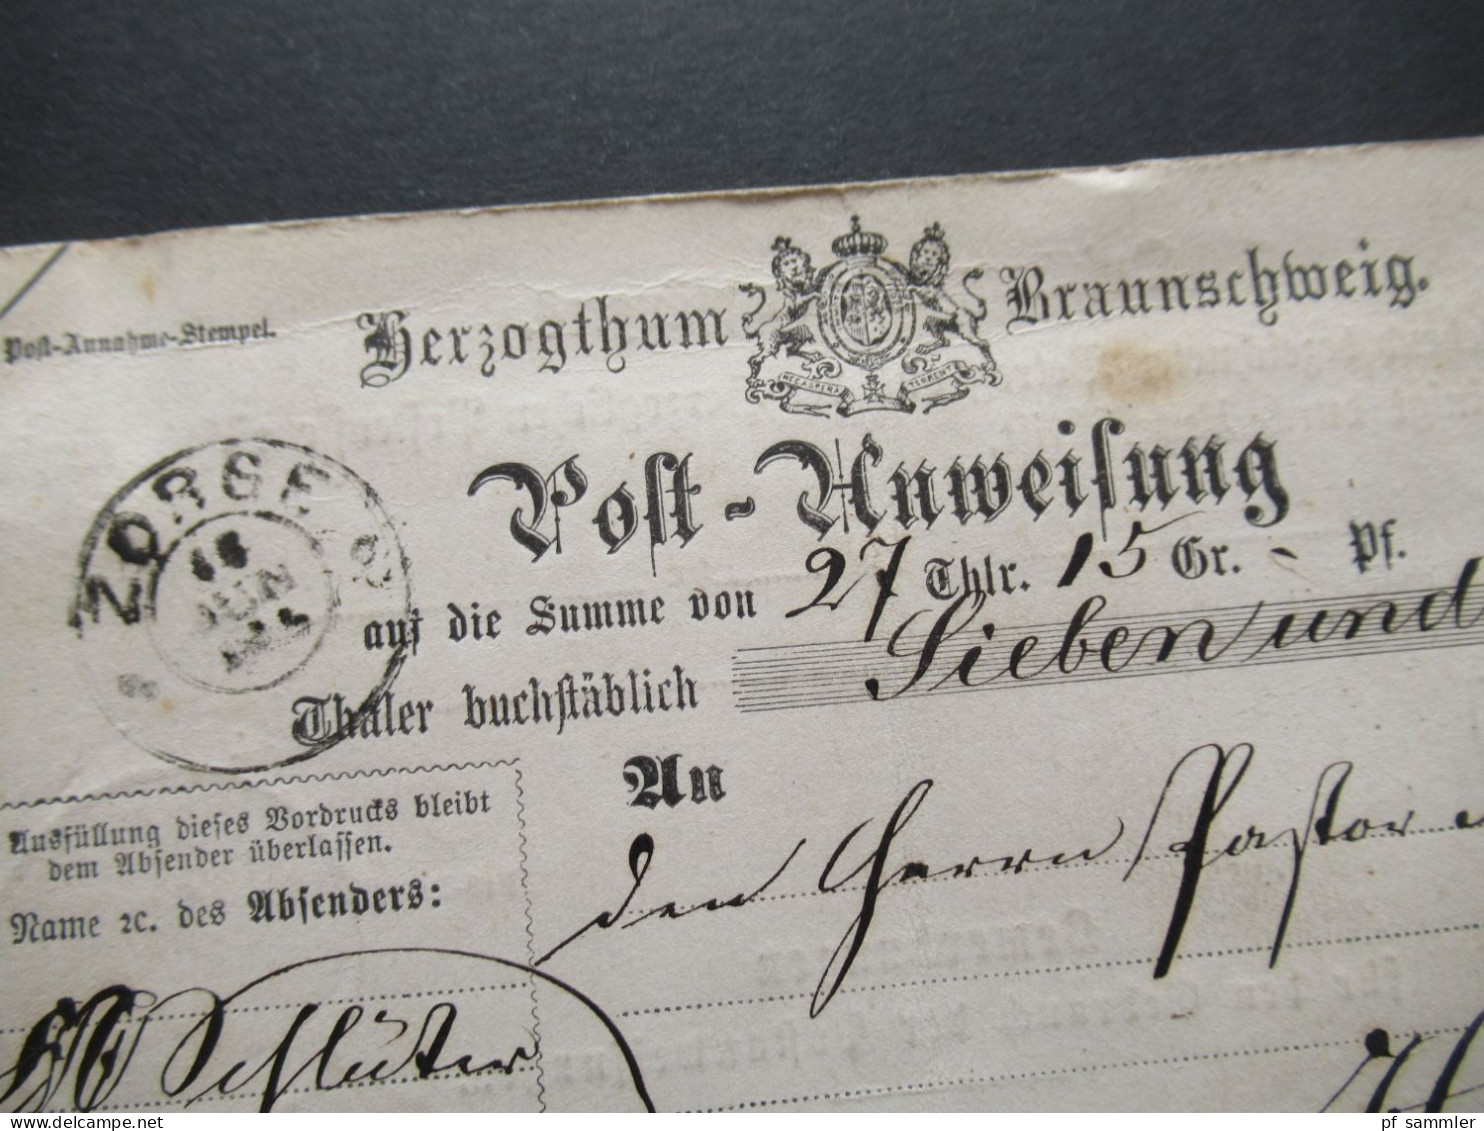 Post-Annahme-Stempel.
Herzogthum Braunschweig.
NEC ASPERA TERRENT
ZORSGE
JUN
Post-Anweisung
auf die Summe von 27 Thlr. 15 Gr. - Pf.
Thaler buchstäblich Sieben und
An
den Herrn Pastor
Ausfüllung dieses Vordrucks bleibt
dem Absender überlassen.
Name ꝛc. des Absenders:
Schlüter
pf_sammler